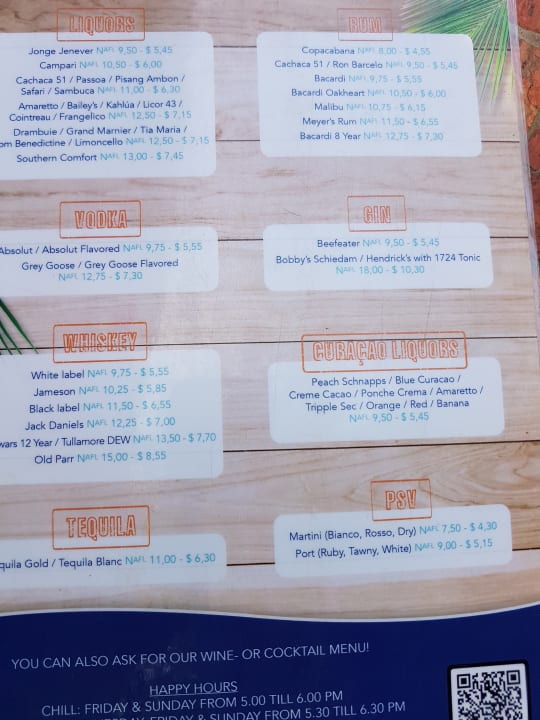 LIQUORS
Jonge Jenever NAFL 9,50 - $ 5,45
Campari NAFL 10,50 - $ 6,00
Cachaca 51 / Passoa / Pisang Ambon /
Safari / Sambuca NAFL 11,00 - $ 6,30
Amaretto / Bailey's / Kahlúa / Licor 43 /
Cointreau / Frangelico NAFL 12,50 - $ 7,15
Drambuie / Grand Marnier / Tia Maria /
om Benedictine / Limoncello NAFL 12,50 - $ 7,15
Southern Comfort NAFL 13,00 - $ 7,45
RUM
Copacabana NAFL 8,00 - $ 4,55
Cachaca 51 / Ron Barcelo NAFL 9,50 - $ 5,45
Bacardi NAFL 9,75 - $ 5,55
Bacardi Oakheart NAFL 10,50 - $ 6,00
Malibu NAFL 10,75 - $ 6,15
Meyer's Rum NAFL 11,50 - $ 6,55
Bacardi 8 Year NAFL 12,75 - $ 7,30
VODKA
Absolut / Absolut Flavored NAFL 9,75 - $ 5,55
Grey Goose / Grey Goose Flavored
NAFL 12,75 - $ 7,30
GIN
Beefeater NAFL 9,50 - $ 5,45
Bobby's Schiedam / Hendrick's with 1724 Tonic
NAFL 18,00 - $ 10,30
WHISKEY
White label NAFL 9,75 - $ 5,55
Jameson NAFL 10,25 - $ 5,85
Black label NAFL 11,50 - $ 6,55
Jack Daniels NAFL 12,25 - $ 7,00
wars 12 Year / Tullamore DEW NAFL 13,50 - $ 7,70
Old Parr NAFL 15,00 - $ 8,55
CURAÇAO LIQUORS
Peach Schnapps / Blue Curacao /
Creme Cacao / Ponche Crema / Amaretto /
Tripple Sec / Orange / Red / Banana
NAFL 9,50 - $ 5,45
TEQUILA
quila Gold / Tequila Blanc NAFL 11,00 - $ 6,30
PSV
Martini (Bianco, Rosso, Dry) NAFL 7,50 - $ 4,30
Port (Ruby, Tawny, White) NAFL 9,00 - $ 5,15
YOU CAN ALSO ASK FOR OUR WINE- OR COCKTAIL MENU!
HAPPY HOURS
CHILL: FRIDAY & SUNDAY FROM 5.00 TILL 6.00 PM
FRIDAY & SUNDAY FROM 5.30 TILL 6.30 PM